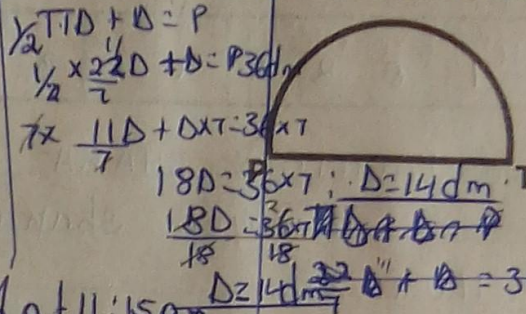 1/2 πD + D = P
1/2 × 22/7 D + D = P36dm
7× 11D/7 + D×7 = 36×7
18D = 36×7 ∴ D = 14dm
18D/18 = 36×7/18
D = 14dm